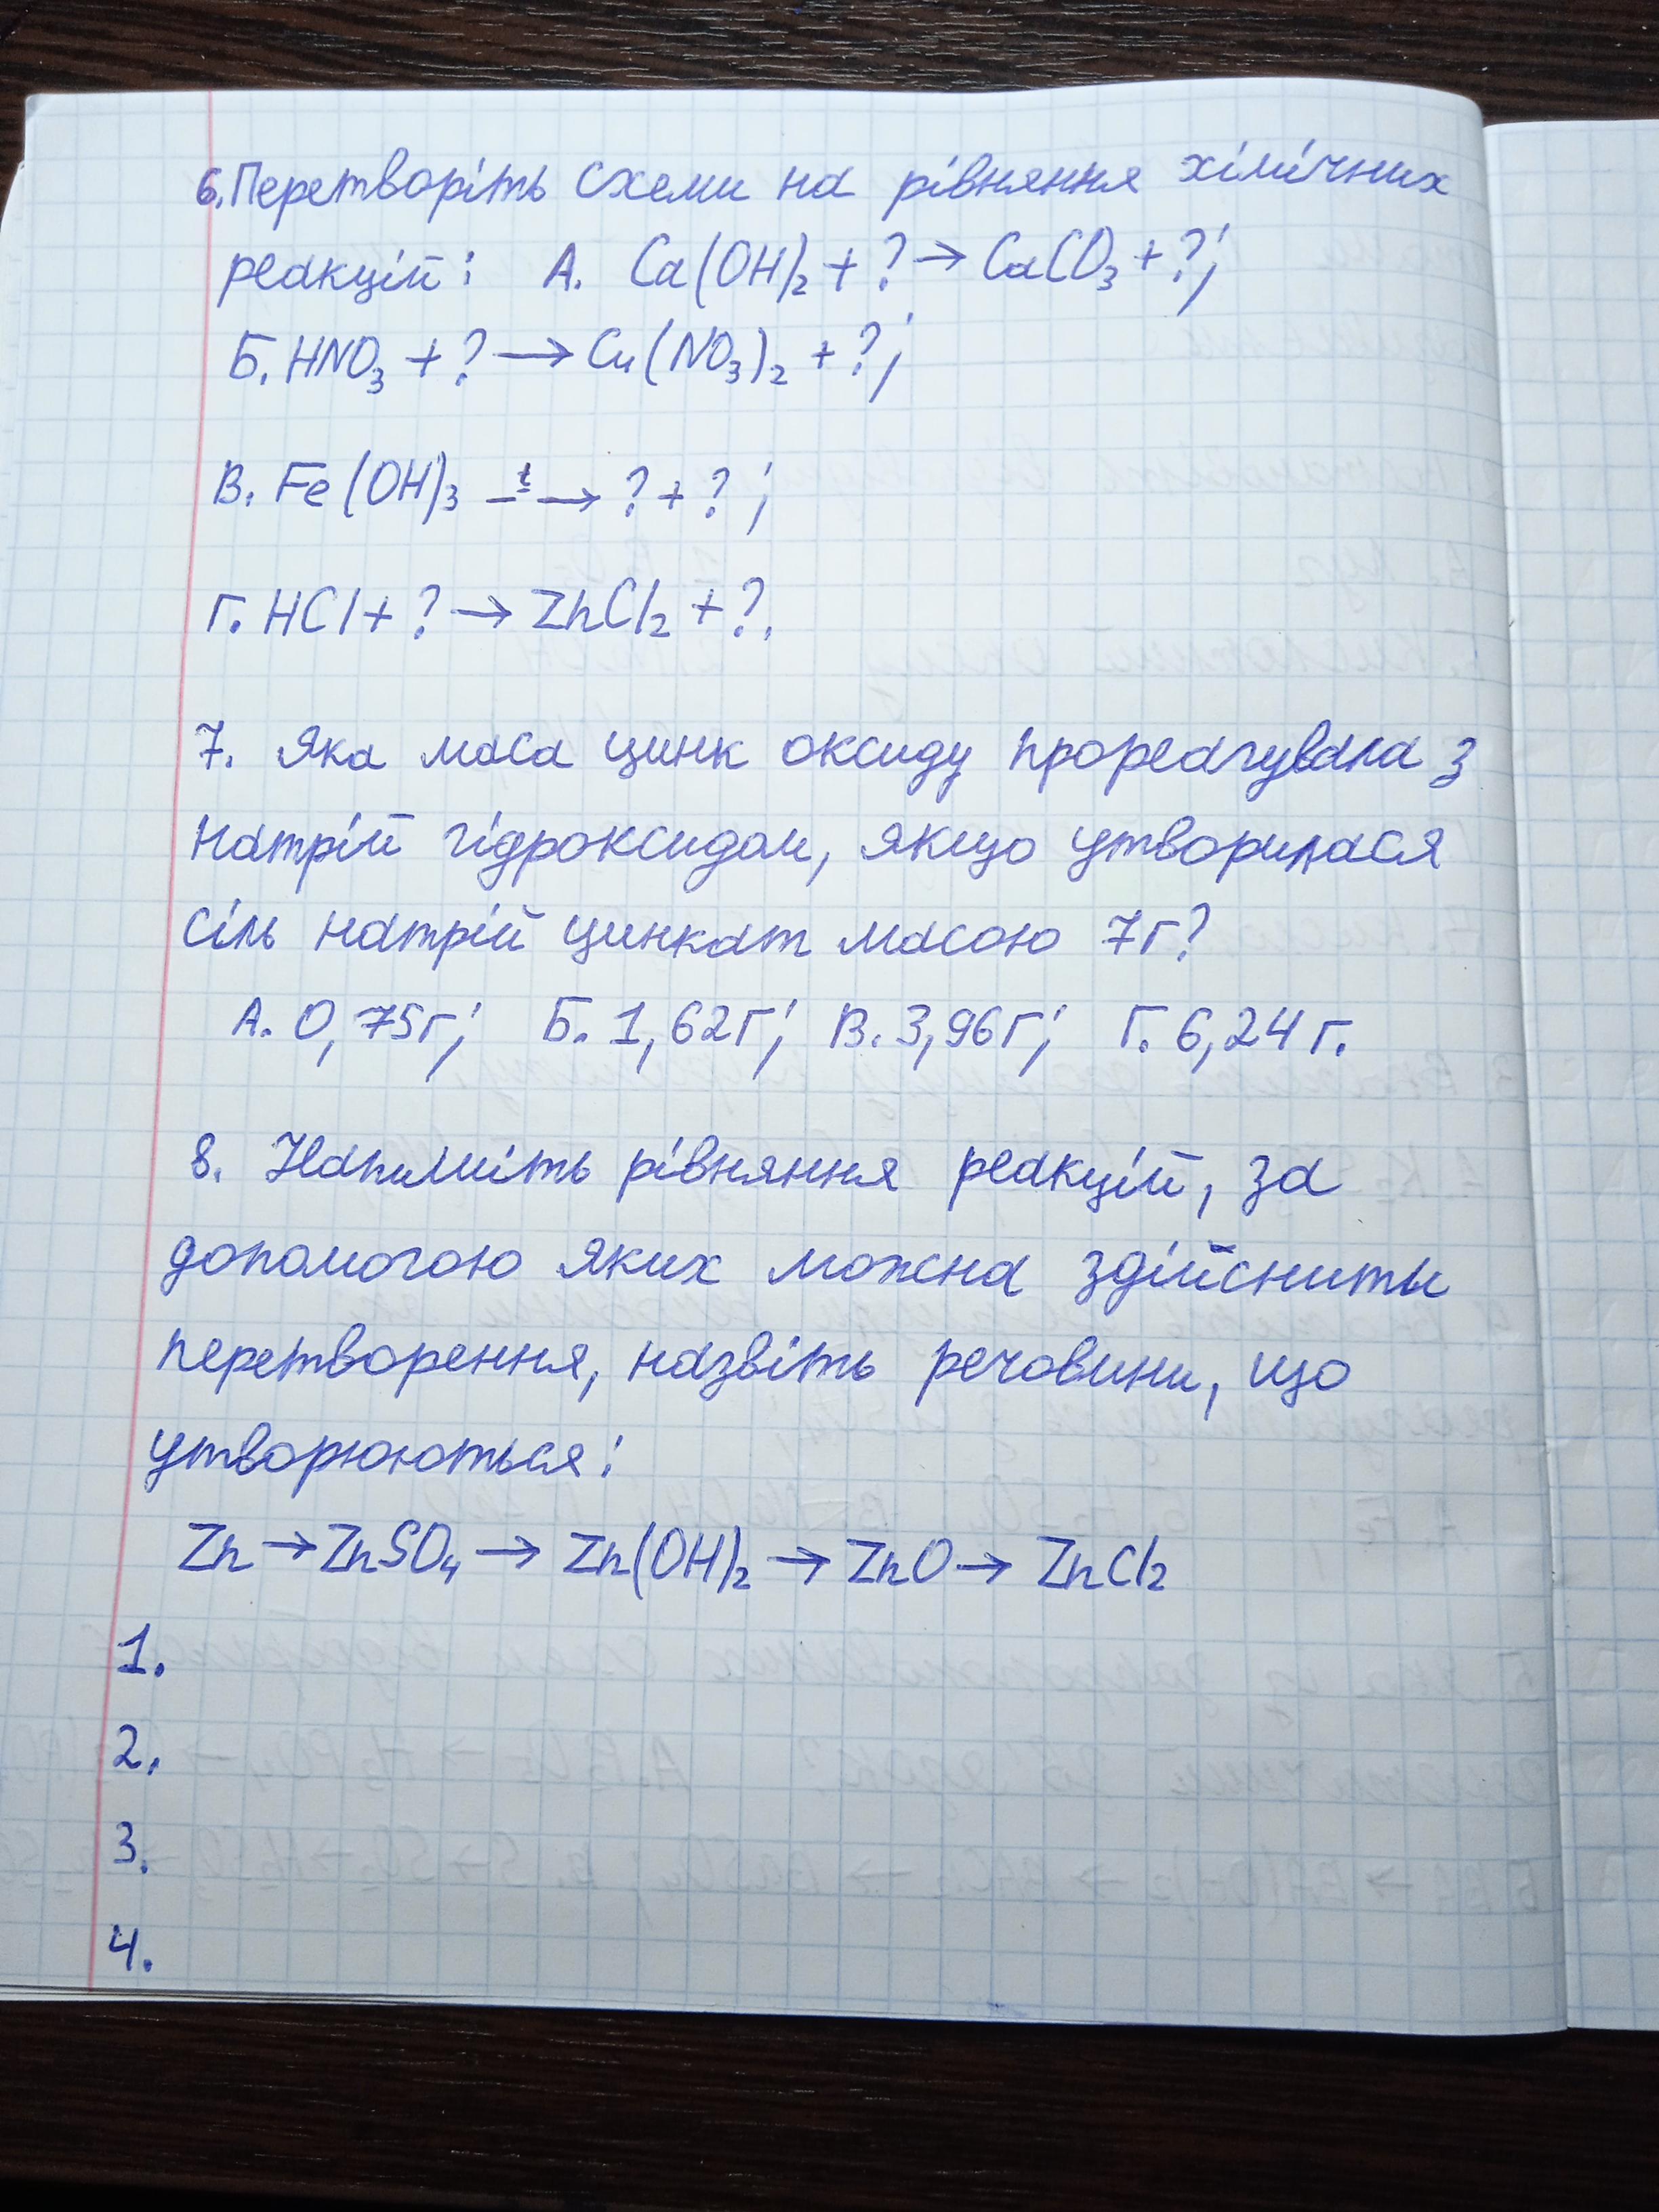 6. Перетворіть схеми на рівняння хімічних
реакцій: А. Ca(OH)₂ + ? → CaCO₃ + ?;
Б. HNO₃ + ? → Cu(NO₃)₂ + ?;
В. Fe(OH)₃ —t→ ? + ?;
Г. HCl + ? → ZnCl₂ + ?.
7. Яка маса цинк оксиду прореагувала з
натрій гідроксидом, якщо утворилася
сіль натрій цинкат масою 7г?
А. 0,75г; Б. 1,62г; В. 3,96г; Г. 6,24г.
8. Напишіть рівняння реакцій, за
допомогою яких можна здійснити
перетворення, назвіть речовини, що
утворюються:
Zn → ZnSO₄ → Zn(OH)₂ → ZnO → ZnCl₂
1.
2.
3.
4.